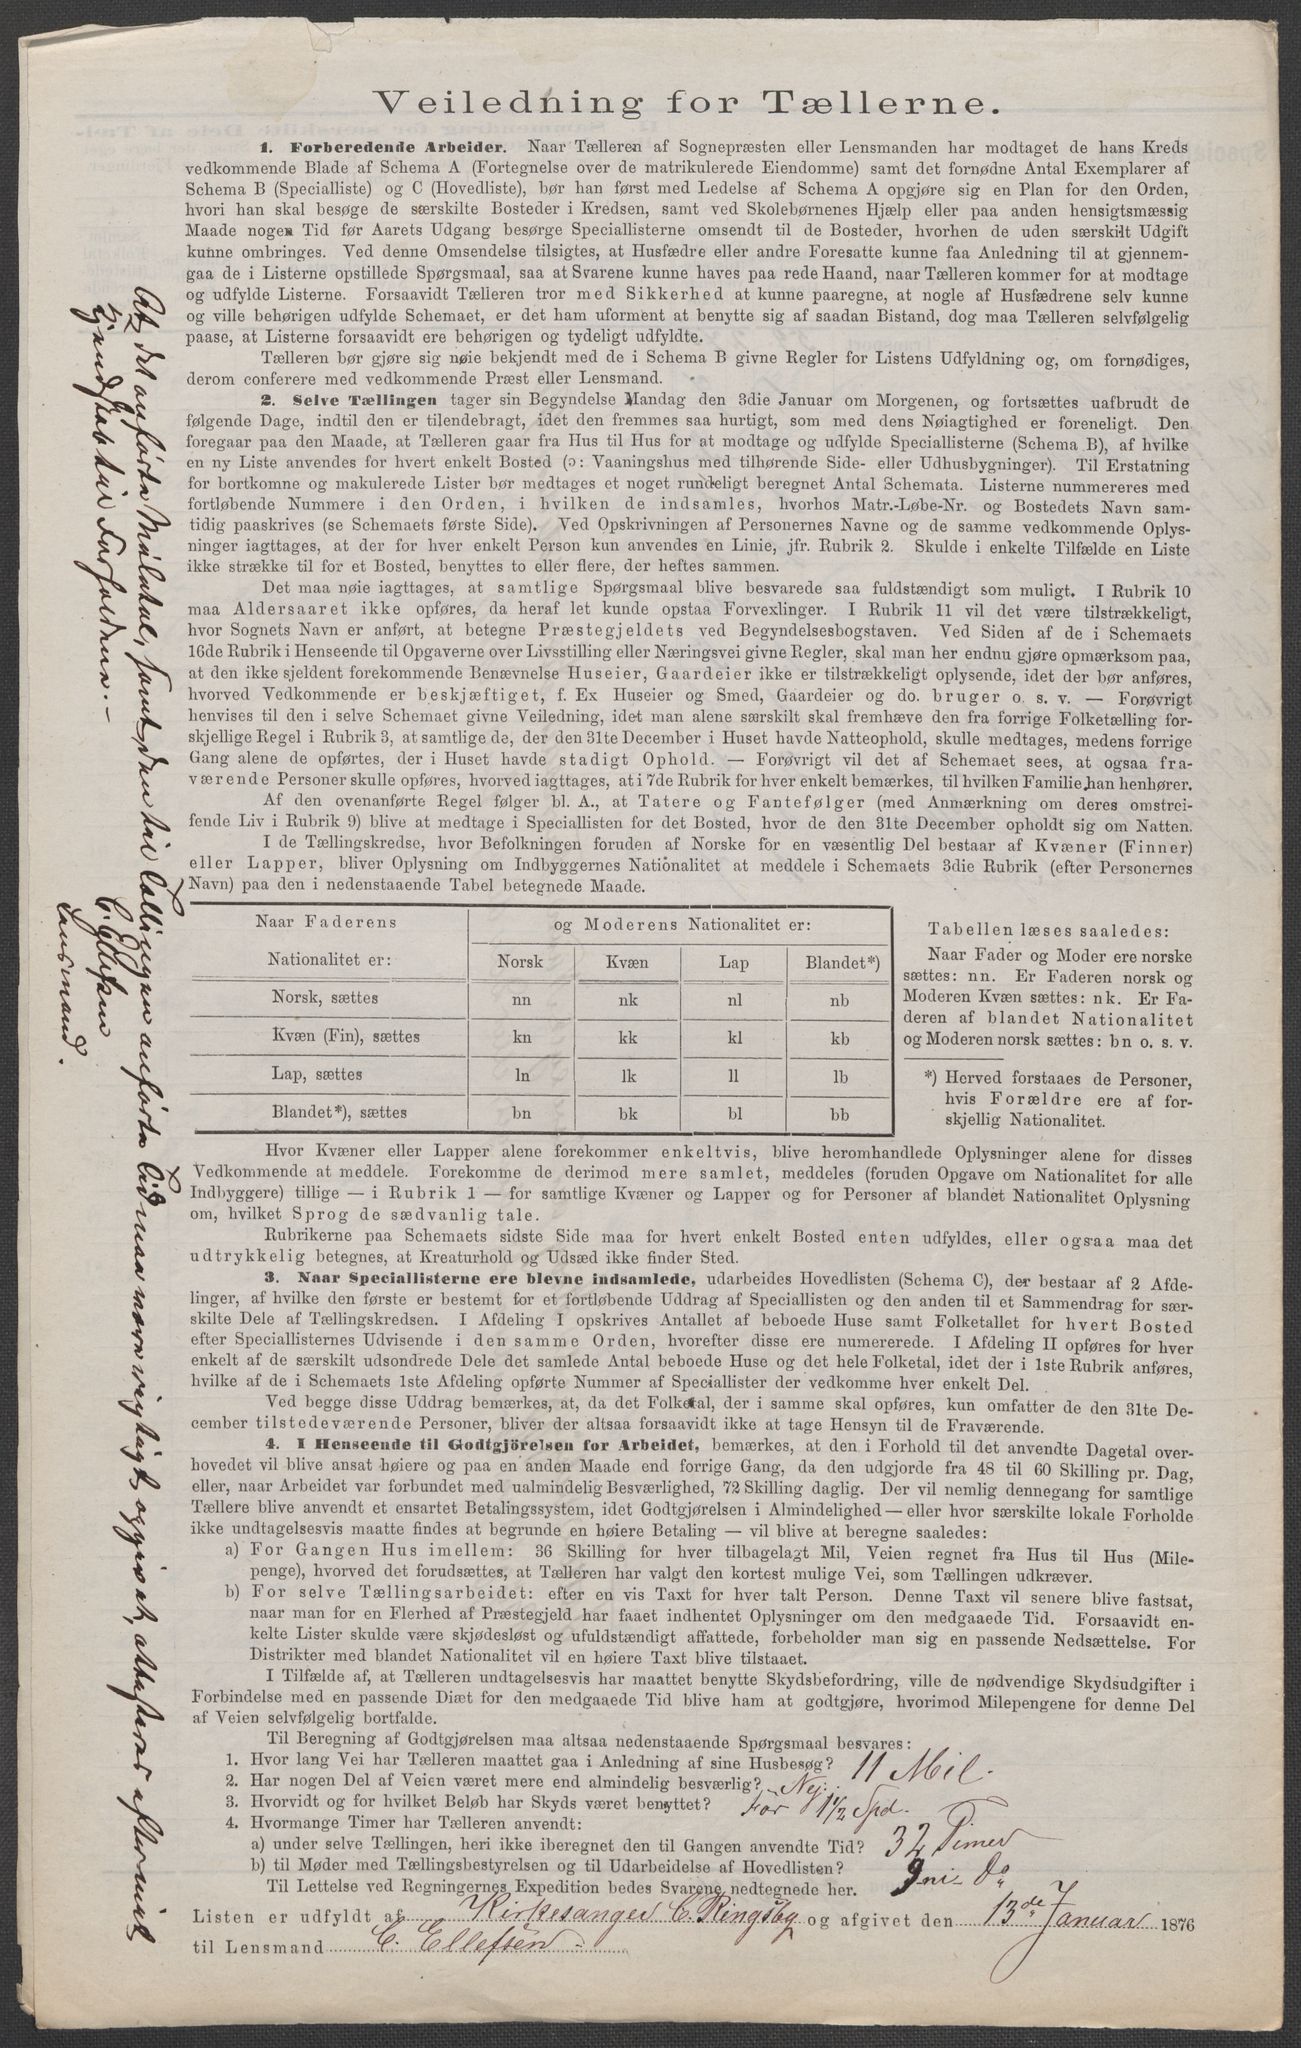 Veiledning for Tællerne.
1. Forberedende Arbeider. Naar Tælleren af Sognepræsten eller Lensmanden har modtaget de hans Kreds
vedkommende Blade af Schema A (Fortegnelse over de matrikulerede Eiendomme) samt det fornødne Antal Exemplarer af
Schema B (Specialliste) og C (Hovedliste), bør han først med Ledelse af Schema A opgjøre sig en Plan for den Orden,
hvori han skal besøge de særskilte Bosteder i Kredsen, samt ved Skolebørnenes Hjælp eller paa anden hensigtsmæssig
Maade nogen Tid før Aarets Udgang besørge Speciallisterne omsendt til de Bosteder, hvorhen de uden særskilt Udgift
kunne ombringes. Ved denne Omsendelse tilsigtes, at Husfædre eller andre Foresatte kunne faa Anledning til at gjennem-
gaa de i Listerne opstillede Spørgsmaal, saa at Svarene kunne haves paa rede Haand, naar Tælleren kommer for at modtage
og udfylde Listerne. Forsaavidt Tælleren tror med Sikkerhed at kunne paaregne, at nogle af Husfædrene selv kunne
og ville behørigen udfylde Schemaet, er det ham uforment at benytte sig af saadan Bistand, dog maa Tælleren selvfølgelig
paase, at Listerne forsaavidt ere behørigen og tydeligt udfyldte.
Tælleren bør gjøre sig nøie bekjendt med de i Schema B givne Regler for Listens Udfyldning og, om fornødiges,
derom conferere med vedkommende Præst eller Lensmand.
2. Selve Tællingen tager sin Begyndelse Mandag den 3die Januar om Morgenen, og fortsættes uafbrudt de
følgende Dage, indtil den er tilendebragt, idet den fremmes saa hurtigt, som med dens Nøiagtighed er foreneligt. Den
foregaar paa den Maade, at Tælleren gaar fra Hus til Hus for at modtage og udfylde Speciallisterne (Schema B), af hvilke
en ny Liste anvendes for hvert enkelt Bosted (ɔ: Vaaningshus med tilhørende Side- eller Udhusbygninger). Til Erstatning
for bortkomne og makulerede Lister bør medtages et noget rundeligt beregnet Antal Schemata. Listerne nummereres med
fortløbende Nummere i den Orden, i hvilken de indsamles, hvorhos Matr.-Løbe-Nr. og Bostedets Navn sam-
tidig paaskrives (se Schemaets første Side). Ved Opskrivningen af Personernes Navne og de samme vedkommende Oplys-
ninger iagttages, at der for hver enkelt Person kun anvendes en Linie, jfr. Rubrik 2. Skulde i enkelte Tilfælde en Liste
ikke strække til for et Bosted, benyttes to eller flere, der heftes sammen.
Det maa nøie iagttages, at samtlige Spørgsmaal blive besvarede saa fuldstændigt som muligt. I Rubrik 10
maa Aldersaaret ikke opføres, da heraf let kunde opstaa Forvexlinger. I Rubrik 11 vil det være tilstrækkeligt,
hvor Sognets Navn er anført, at betegne Præstegjeldets ved Begyndelsesbogstaven. Ved Siden af de i Schemaets
16de Rubrik i Henseende til Opgaverne over Livsstilling eller Næringsvei givne Regler, skal man her endnu gjøre opmærksom paa,
at den ikke sjeldent forekommende Benævnelse Huseier, Gaardeier ikke er tilstrækkeligt oplysende, idet der bør anføres,
hvorved Vedkommende er beskjæftiget, f. Ex Huseier og Smed, Gaardeier og do. bruger o. s. v. — Forøvrigt
henvises til den i selve Schemaet givne Veiledning, idet man alene særskilt skal fremhæve den fra forrige Folketælling for-
skjellige Regel i Rubrik 3, at samtlige de, der den 31te December i Huset havde Natteophold, skulle medtages, medens forrige
Gang alene de opførtes, der i Huset havde stadigt Ophold. — Forøvrigt vil det af Schemaet sees, at ogsaa fra-
værende Personer skulle opføres, hvorved iagttages, at i 7de Rubrik for hver enkelt bemærkes, til hvilken Familie han henhører.
Af den ovenanførte Regel følger bl. A., at Tatere og Fantefølger (med Anmærkning om deres omstrei-
fende Liv i Rubrik 9) blive at medtage i Speciallisten for det Bosted, hvor de den 31te December opholdt sig om Natten.
I de Tællingskredse, hvor Befolkningen foruden af Norske for en væsentlig Del bestaar af Kvæner (Finner)
eller Lapper, bliver Oplysning om Indbyggernes Nationalitet at meddele i Schemaets 3die Rubrik (efter Personernes
Navn) paa den i nedenstaaende Tabel betegnede Maade.
Naar Faderens og Moderens Nationalitet er:
Nationalitet er: Norsk Kvæn Lap Blandet*)
Norsk, sættes nn nk nl nb
Kvæn (Fin), sættes kn kk kl kb
Lap, sættes ln lk ll lb
Blandet*), sættes bn bk bl bb
Tabellen læses saaledes:
Naar Fader og Moder ere norske
sættes: nn. Er Faderen norsk og
Moderen Kvæn sættes: nk. Er Fa-
deren af blandet Nationalitet
og Moderen norsk sættes: bn o. s. v.
*) Herved forstaaes de Personer,
hvis Forældre ere af for-
skjellig Nationalitet.
Hvor Kvæner eller Lapper alene forekommer enkeltvis, blive heromhandlede Oplysninger alene for disses
Vedkommende at meddele. Forekomme de derimod mere samlet, meddeles (foruden Opgave om Nationalitet for alle
Indbyggere) tillige — i Rubrik 1 — for samtlige Kvæner og Lapper og for Personer af blandet Nationalitet Oplysning
om, hvilket Sprog de sædvanlig tale.
Rubrikerne paa Schemaets sidste Side maa for hvert enkelt Bosted enten udfyldes, eller ogsaa maa det
udtrykkelig betegnes, at Kreaturhold og Udsæd ikke finder Sted.
3. Naar Speciallisterne ere blevne indsamlede, udarbeides Hovedlisten (Schema C), der bestaar af 2 Afde-
linger, af hvilke den første er bestemt for et fortløbende Uddrag af Speciallisten og den anden til et Sammendrag for sær-
skilte Dele af Tællingskredsen. I Afdeling I opskrives Antallet af beboede Huse samt Folketallet for hvert Bosted
efter Speciallisternes Udvisende i den samme Orden, hvorefter disse ere numererede. I Afdeling II opføres for hver
enkelt af de særskilt udsondrede Dele det samlede Antal beboede Huse og det hele Folketal, idet der i 1ste Rubrik anføres,
hvilke af de i Schemaets 1ste Afdeling opførte Nummer af Speciallister der vedkomme hver enkelt Del.
Ved begge disse Uddrag bemærkes, at, da det Folketal, der i samme skal opføres, kun omfatter de den 31te De-
cember tilstedeværende Personer, bliver der altsaa forsaavidt ikke at tage Hensyn til de Fraværende.
4. I Henseende til Godtgjörelsen for Arbeidet, bemærkes, at den i Forhold til det anvendte Dagetal over-
hovedet vil blive ansat høiere og paa en anden Maade end forrige Gang, da den udgjorde fra 48 til 60 Skilling pr. Dag,
eller, naar Arbeidet var forbundet med ualmindelig Besværlighed, 72 Skilling daglig. Der vil nemlig dennegang for samtlige
Tællere blive anvendt et ensartet Betalingssystem, idet Godtgjørelsen i Almindelighed — eller hvor særskilte lokale Forholde
ikke undtagelsesvis maatte findes at begrunde en høiere Betaling — vil blive at beregne saaledes:
a) For Gangen Hus imellem: 36 Skilling for hver tilbagelagt Mil, Veien regnet fra Hus til Hus (Mile-
penge), hvorved det forudsættes, at Tælleren har valgt den kortest mulige Vei, som Tællingen udkræver.
b) For selve Tællingsarbeidet: efter en vis Taxt for hver talt Person. Denne Taxt vil senere blive fastsat,
naar man for en Flerhed af Præstegjeld har faaet indhentet Oplysninger om den medgaaede Tid. Forsaavidt en-
kelte Lister skulde være skjødesløst og ufuldstændigt affattede, forbeholder man sig en passende Nedsættelse. For
Distrikter med blandet Nationalitet vil en høiere Taxt blive tilstaaet.
I Tilfælde af, at Tælleren undtagelsesvis har maattet benytte Skydsbefordring, ville de nødvendige Skydsudgifter i
Forbindelse med en passende Diæt for den medgaaede Tid blive ham at godtgjøre, hvorimod Milepengene for denne Del
af Veien selvfølgelig bortfalde.
Til Beregning af Godtgjørelsen maa altsaa nedenstaaende Spørgsmaal besvares:
1. Hvor lang Vei har Tælleren maattet gaa i Anledning af sine Husbesøg? 11 Mil.
2. Har nogen Del af Veien været mere end almindelig besværlig? Nej.
3. Hvorvidt og for hvilket Beløb har Skyds været benyttet? For 1 1/2 Spd.
4. Hvormange Timer har Tælleren anvendt:
a) under selve Tællingen, heri ikke iberegnet den til Gangen anvendte Tid? 32 Timer
b) til Møder med Tællingsbestyrelsen og til Udarbeidelse af Hovedlisten? 9 ni Do
Til Lettelse ved Regningernes Expedition bedes Svarene nedtegnede her.
Listen er udfyldt af Kirkesanger C. Ringsby og afgivet den 13de Januar 1876
til Lensmand C. Ellefsen
At det anførte Miletal, samt den til Tællingen anførte Tid maa være rigtigt opgivet, attesteres efter mit
Kjendskab til Forholdene. —
C. Ellefsen
Lensmand.